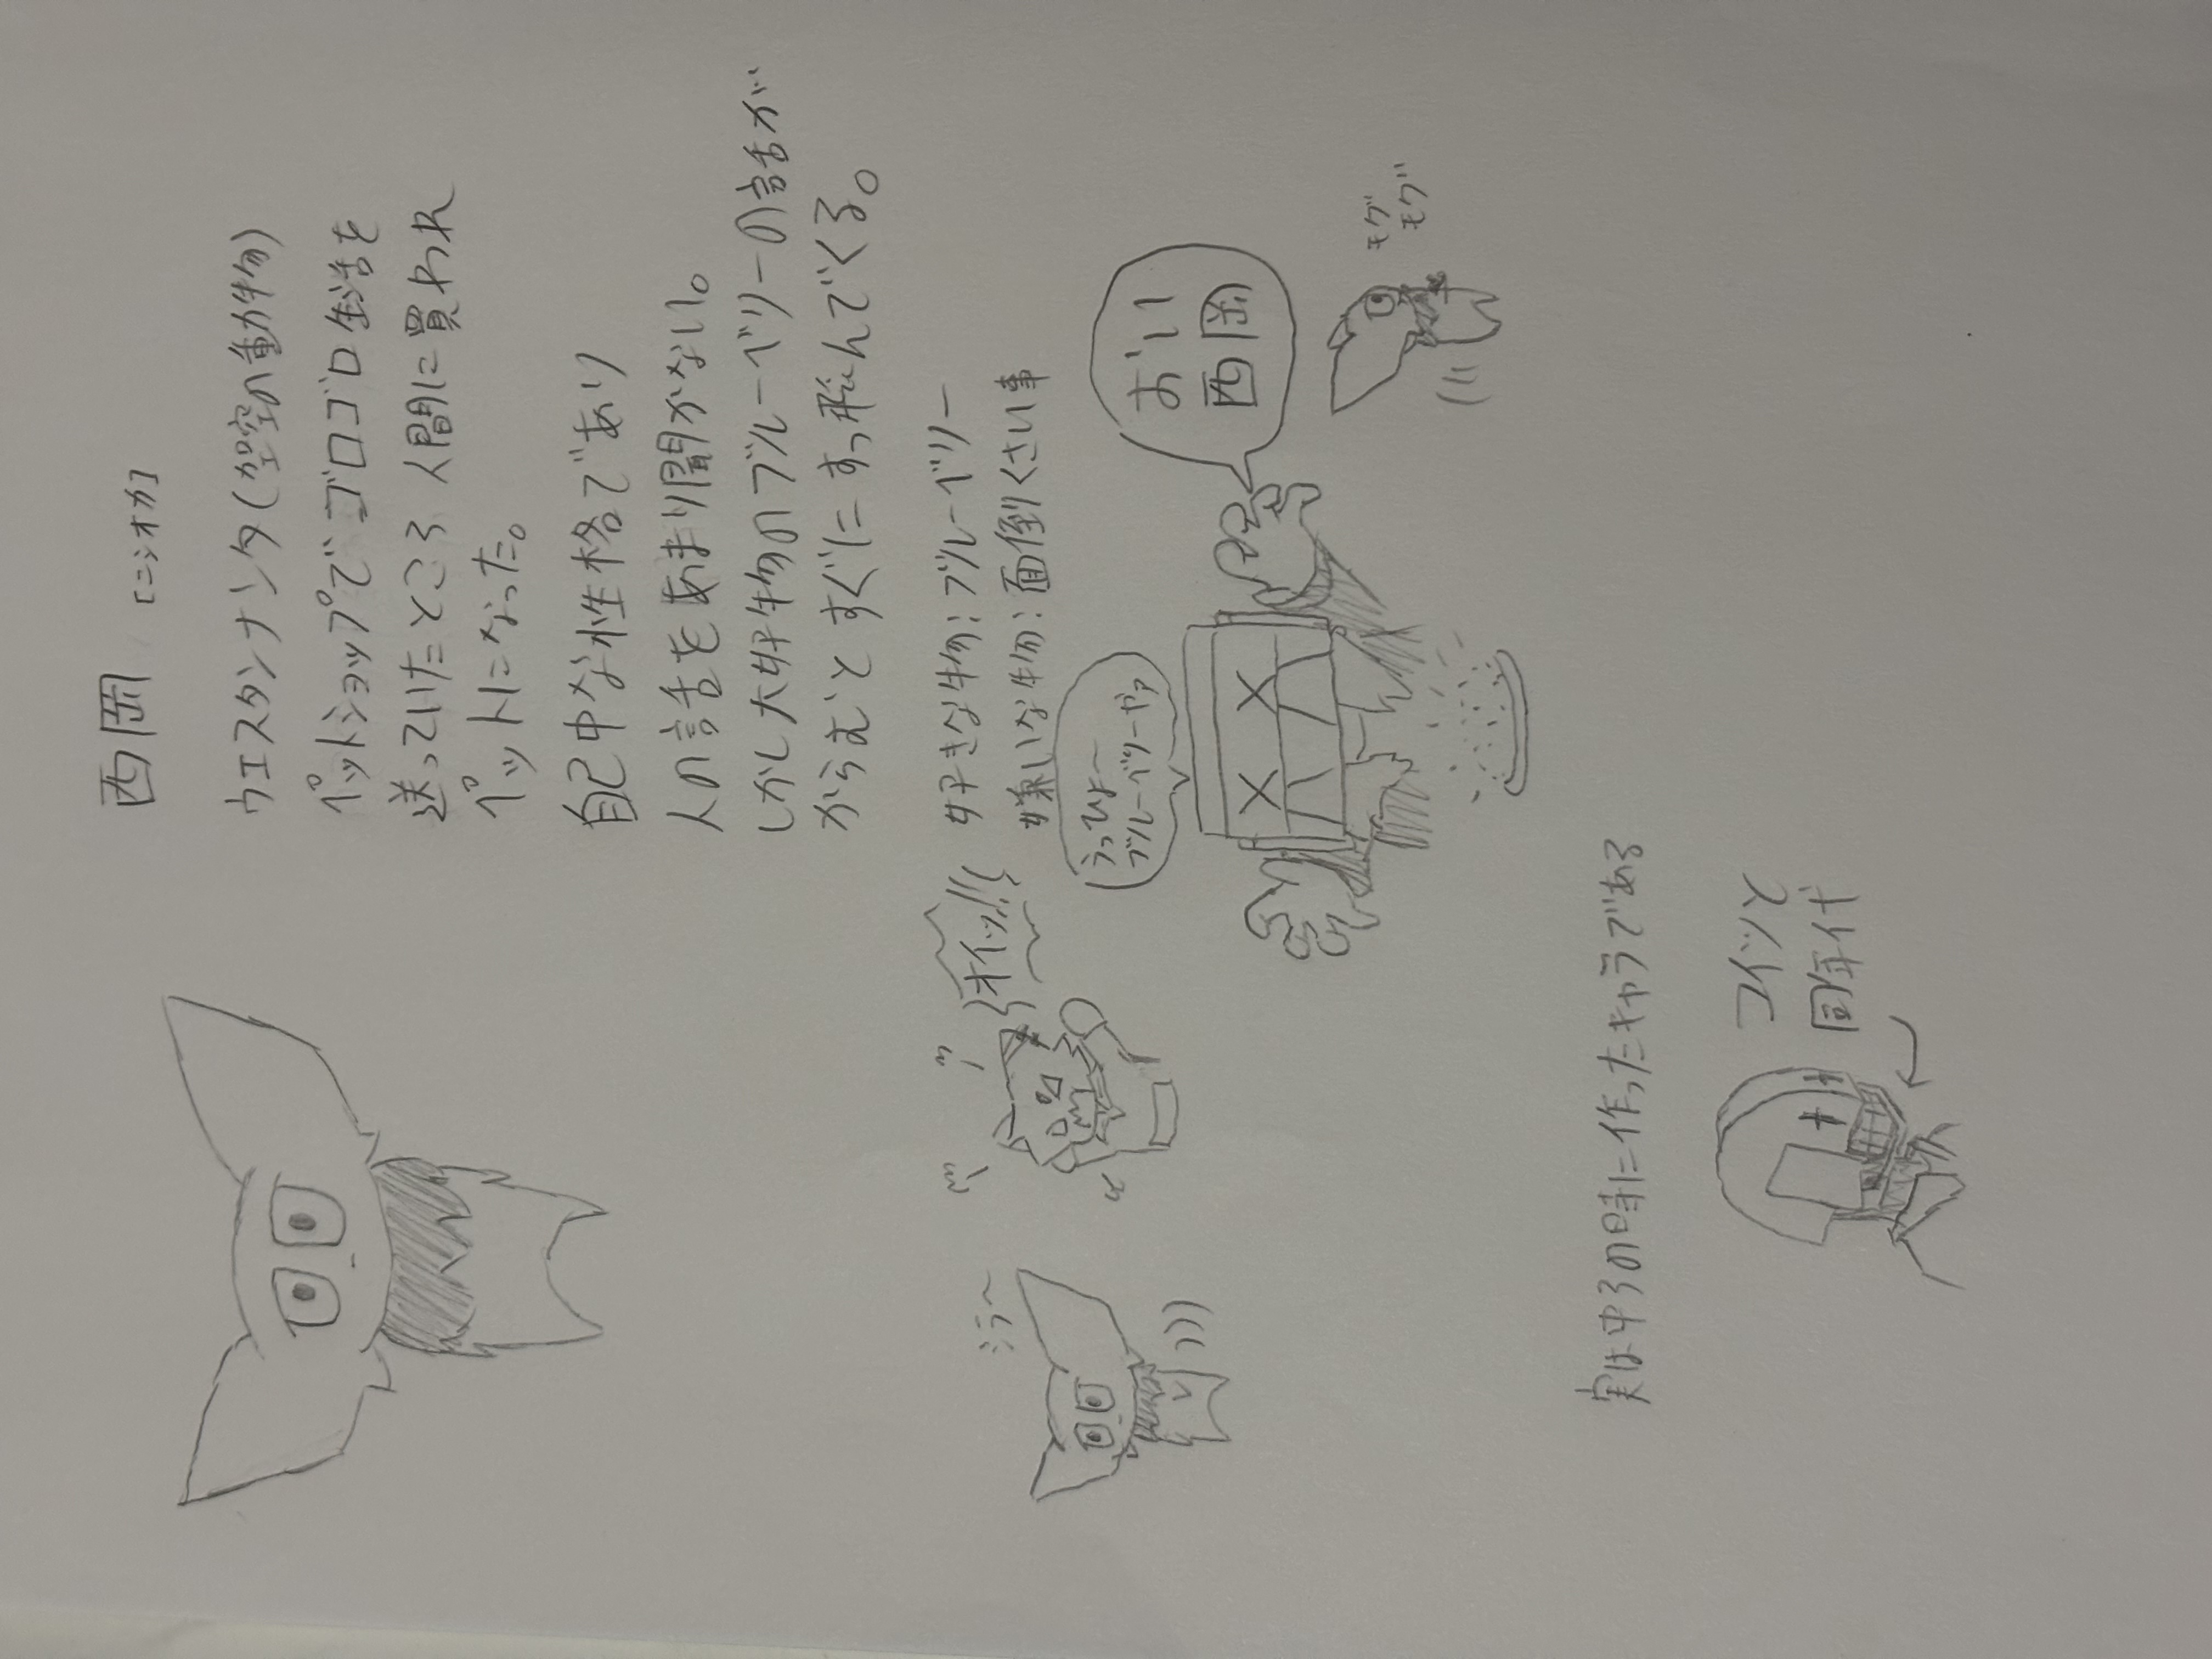 西岡 [ニシオカ]
ウエスタンナンタ(架空の動物)
ペットショップでゴロゴロ生活を
送っていたところ人間に買われ
ペットになった。
自己中な性格であり
人の話をあまり聞かない。
しかし大好物のブルーベリーの話が
からむとすぐにすっ飛んでくる。
好きな物:ブルーベリー
嫌いな物:面倒くさい事
ジラ〜
オイッ!!
うっひょー
ブルーベリーやァ
おい
西岡
モグ
モグ
実は中3の時に作ったキャラである
コイツと
同年代